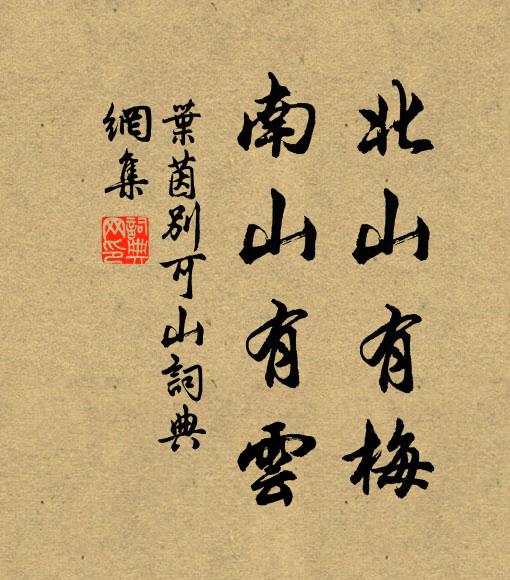 北山有梅
南山有雲
葉茵別可山詞典
網集
詞典
网印